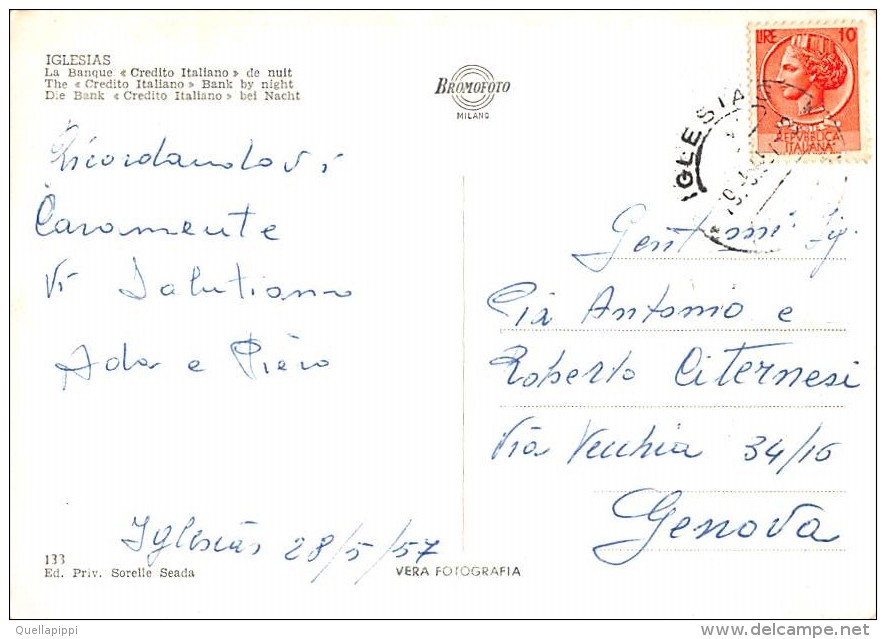 IGLESIAS
La Banque « Credito Italiano » de nuit
The « Credito Italiano » Bank by night
Die Bank « Credito Italiano » bei Nacht
BROMOFOTO
MILANO
LIRE 10
REPVBBLICA
ITALIANA
IGLESIA
Ricordandovi
Caramente
Vi Salutiamo
Ada e Piero
Iglesias 28/5/57
Gent.mi Sig.
Pia Antonio e
Roberto Citernesi
Via Vecchia 34/16
Genova
133
Ed. Priv. Sorelle Seada
VERA FOTOGRAFIA
Quellapippi
www.delcampe.net